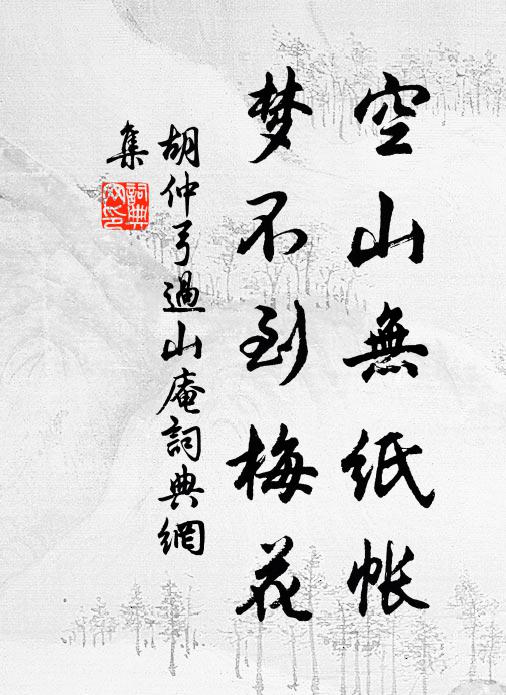 空山無紙帐
梦不到梅花
胡仲弓過山庵詞典網
集
詞典網印